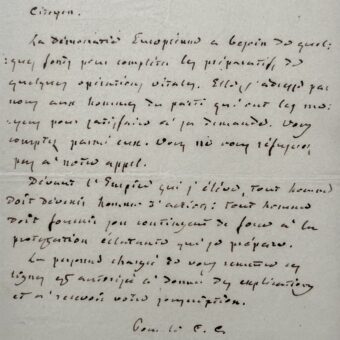 Citoyen.
La démocratie Européenne a besoin de quel-
ques fonds pour compléter les préparatifs de
quelques opérations vitales. Elle s'adresse par
nous aux hommes du parti qui ont les mo-
yens pour satisfaire à sa demande. Vous
comptez parmi eux. Vous ne vous refuserez
pas à notre appel.
Devant l'Empire qui s'élève, tout homme
doit devenir homme d'action: tout homme
doit fournir son contingent de force à la
protestation éclatante qui se prépare.
La personne chargée de vous remettre ces
lignes est autorisée à donner des explications
et à recevoir votre souscription.
Pour le C. C.